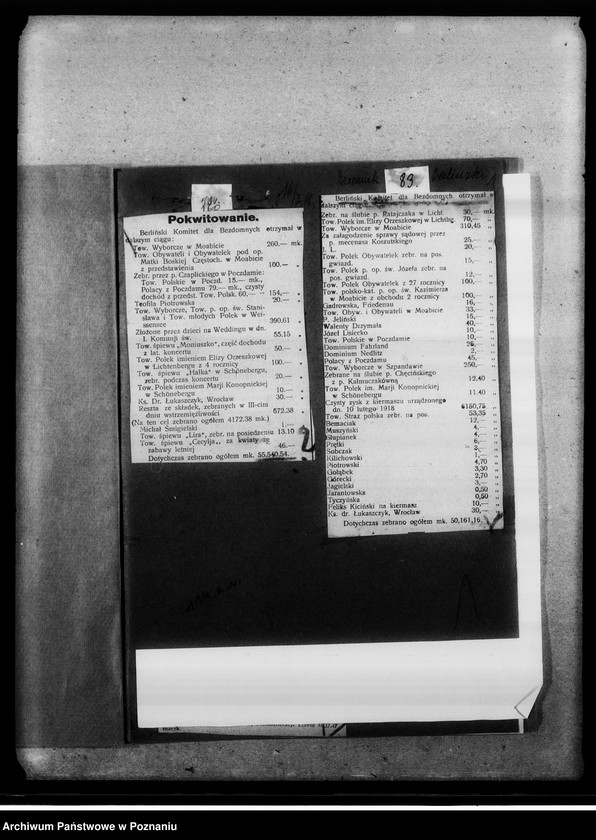 Pokwitowanie.
Berliński Komitet dla Bezdomnych otrzymał w
dalszym ciągu:
Tow. Wyborcze w Moabicie 260.— mk.
Tow. Obywateli i Obywatelek pod op.
Matki Boskiej Częstoch. w Moabicie
z przedstawienia 100.— „
Zebr. przez p. Czaplickiego w Poczdamie:
Tow. Polskie w Poczd. 15.— mk.,
Polacy z Poczdamu 79.— mk., czysty
dochód z przedst. Tow. Polsk. 60,— „ 154,— „
Teofila Piotrowska 20.— „
Tow. Wyborcze, Tow. p. op. św. Stani-
sława i Tow. młodych Polek w Wei-
ssensee 390.61 „
Złożone przez dzieci na Weddingu w dn.
I. Komunji św. 55.15 „
Tow. śpiewu „Moniuszko“, część dochodu
z lat. koncertu 50.— „
Tow. Polek imieniem Elizy Orzeszkowej
w Lichtenbergu z 4 rocznicy 100.— „
Tow. śpiewu „Halka“ w Schönebergu,
zebr. podczas koncertu 20.— „
Tow. Polek imieniem Marji Konopnickiej
w Schönebergu 10.— „
Ks. Dr. Łukaszczyk, Wrocław 30.— „
Reszta ze składek, zebranych w III-cim
dniu wstrzemięźliwości 672.38 „
(Na ten cel zebrano ogółem 4172.38 mk.)
Michał Śmigielski 1.— „
Tow. śpiewu „Lira“, zebr. na posiedzeniu 13.10 „
Tow. śpiewu „Cecylja“, za kwiaty na
zabawy letniej 46.— „
Dotychczas zebrano ogółem mk. 55,540.54.
83.
Berliński Komitet dla Bezdomnych otrzymał w
dalszym ciągu
Zebr. na ślubie p. Ratajczaka w Licht. 30,— mk.
Tow. Polek im. Elizy Orzeszkowej w Lichtbg. 70,— „
Tow. Wyborcze w Moabicie 310,45 „
Za załagodzenie sprawy sądowej przez
p. mecenasa Koszutskiego 25.— „
J. L. 20,— „
Tow. Polek Obywatelek zebr. na pos.
gwiazd. 15,— „
Tow. Polek p. op. św. Józefa zebr. na
pos. gwiazd. 12,— „
Tow. Polek Obywatelek z 27 rocznicy 100,— „
Tow. polsko-kat. p. op. św. Kazimierza
w Moabicie z obchodu 2 rocznicy 100,— „
Gadrowska, Friedenau 16,— „
Tow. Obyw. i Obywateli w Moabicie 33,— „
P. Jeliński 15,— „
Walenty Drzymała 40,— „
Józef Lisiecko 10,— „
Tow. Polskie w Poczdamie 10,— „
Dominium Fahrland 26,— „
Dominium Nedlitz 2,— „
Polacy z Poczdamu 45,— „
Tow. Wyborcze w Szpandawie 250,— „
Zebrane na ślubie p. Chęcińskiego
z p. Kałmuczakówną 12,40 „
Tow. Polek im. Marji Konopnickiej
w Schönebergu 11.40 „
Czysty zysk z kiermaszu urządzonego
dn. 10 lutego 1918 6180,75 „
Tow. Straż polska zebr. na pos. 53,35 „
Bernaciak 12,— „
Muszyński 4,— „
Słupianek 4,— „
Prętki 6,— „
Sobczak 3,— „
Kilichowski 1,— „
Piotrowski 4,70 „
Gołąbek 3,30 „
Górecki 2,70 „
Jagielski 3,— „
Jarantowska 0,50 „
Tyczyńska 0,50 „
Feliks Kiciński na kiermasz 10,— „
Ks. dr. Łukaszczyk, Wrocław 30,— „
Dotychczas zebrano ogółem mk. 50,161,16
Archiwum Państwowe w Poznaniu